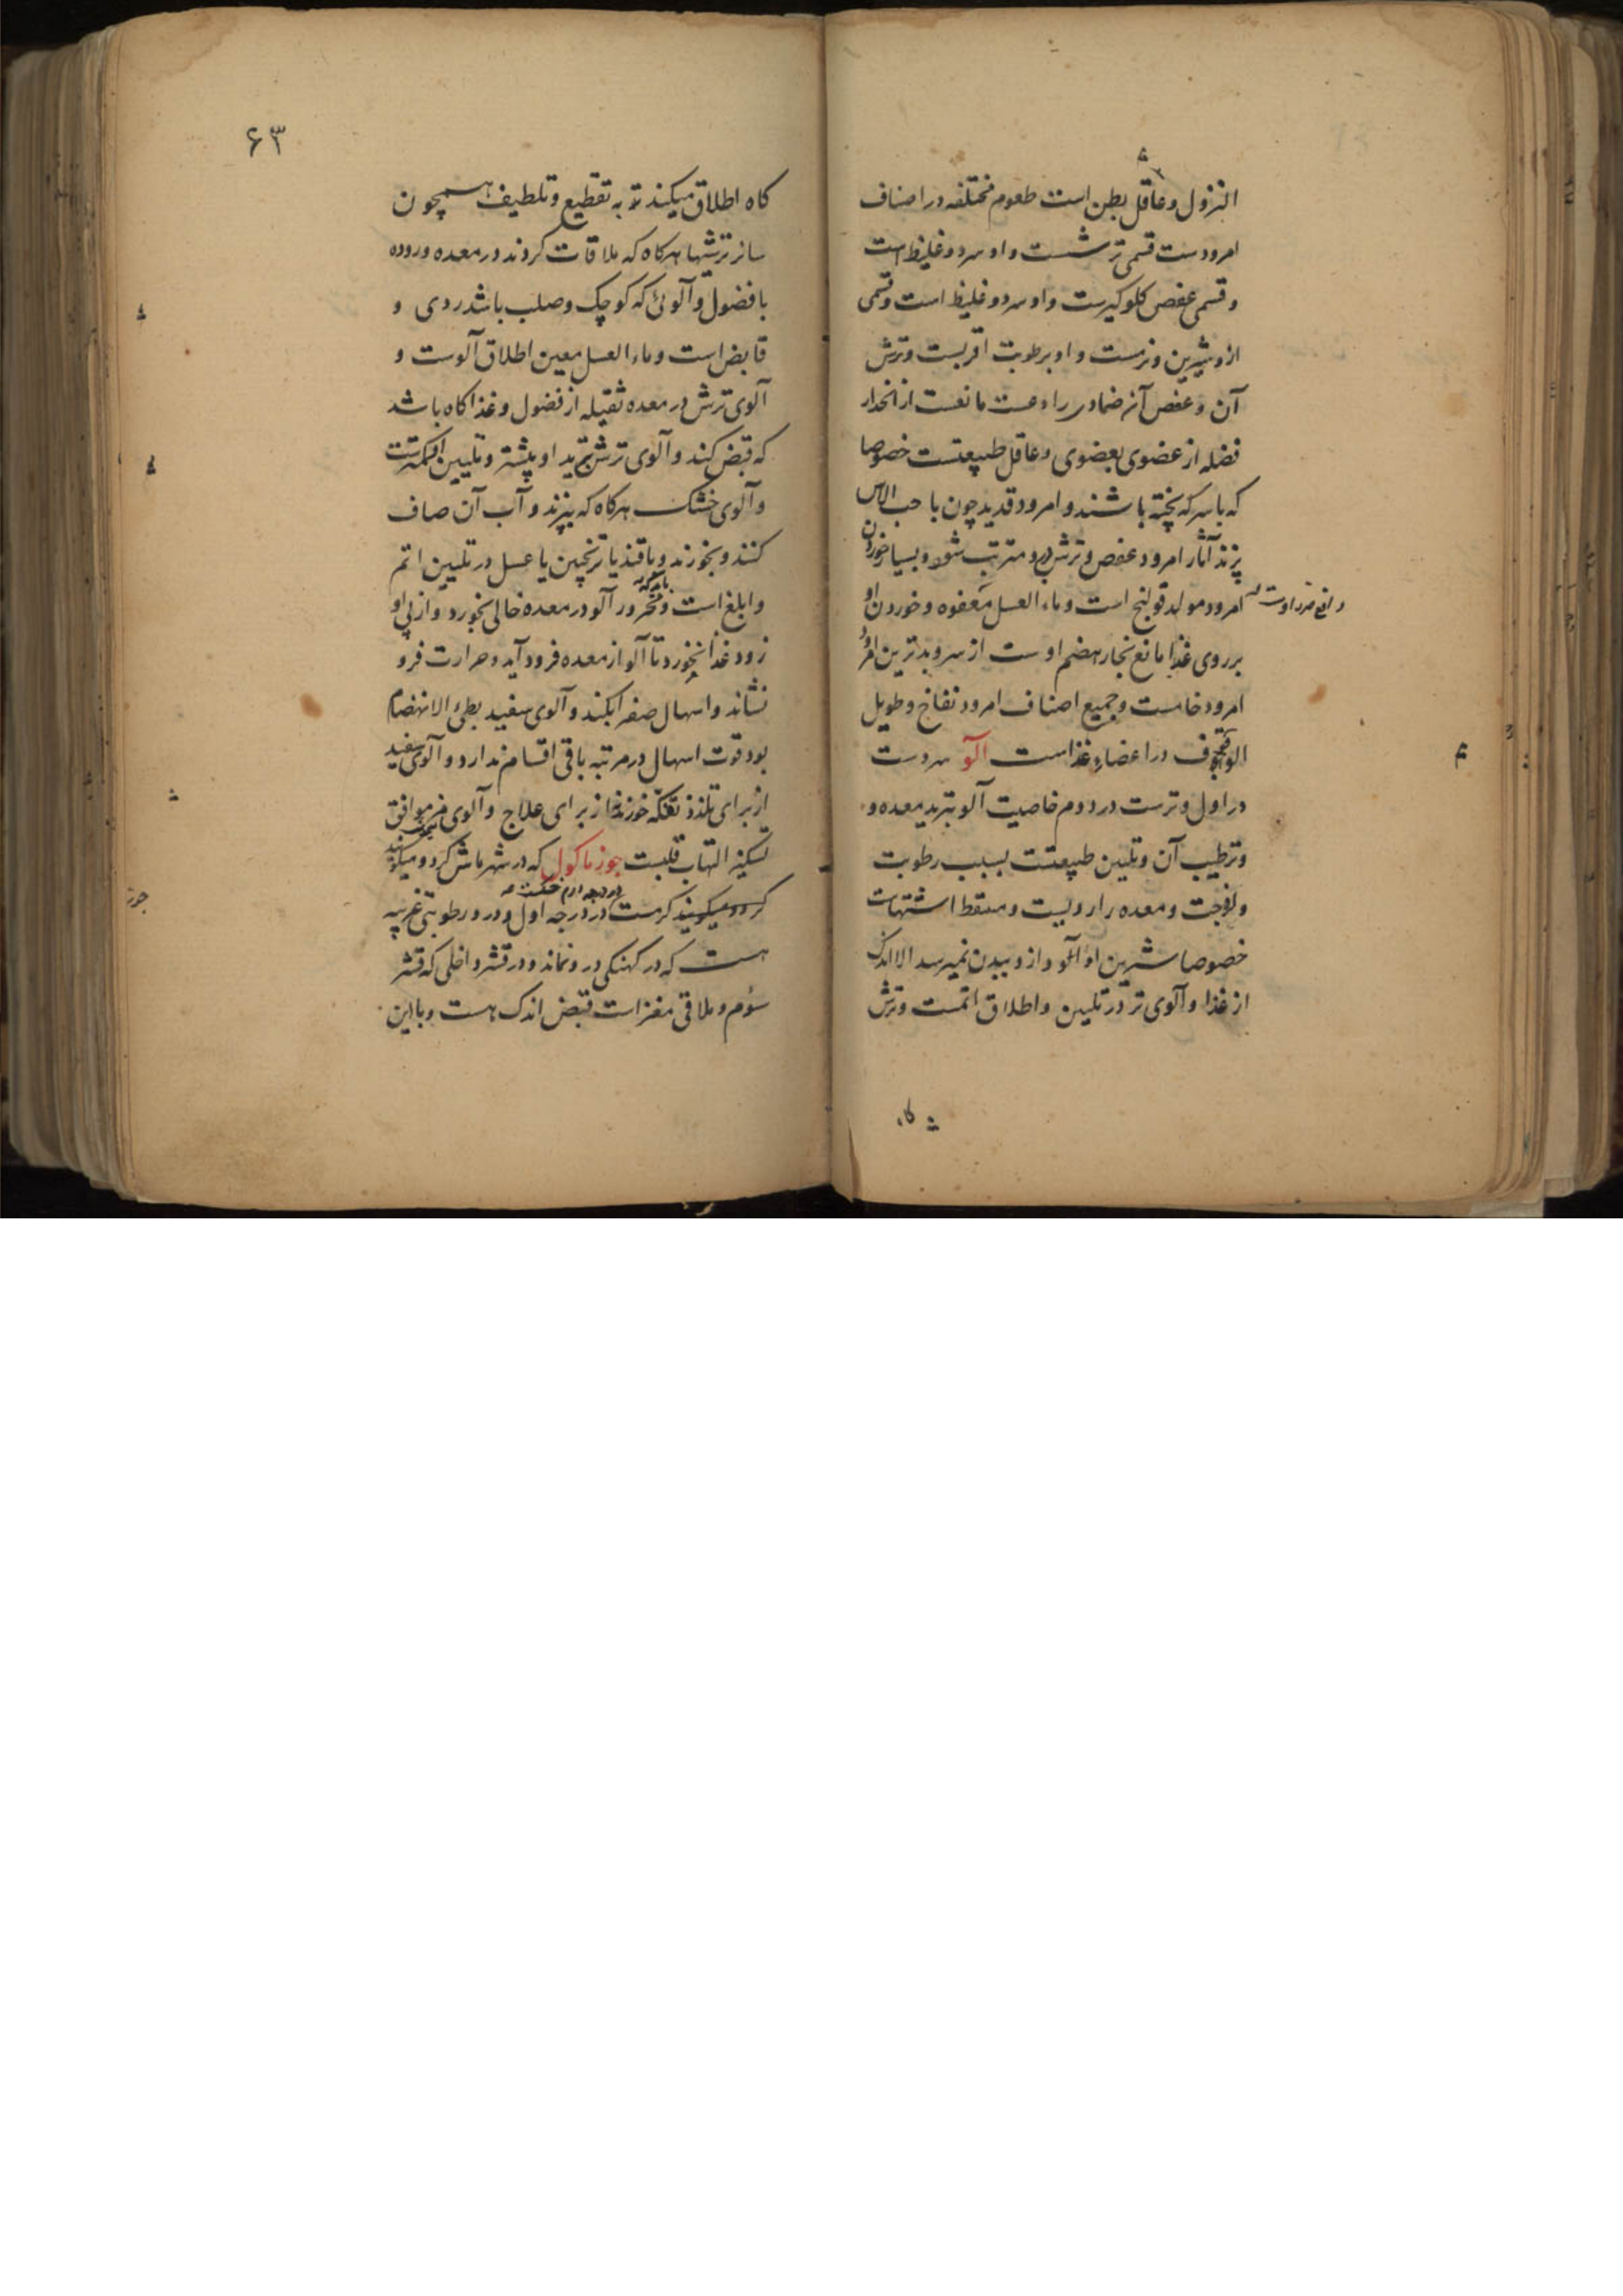 النزول و عاقل بطن است طعوم مختلفه در اصناف
امرودست قسمی ترشست و او سرد و غلیظ است
و قسمی عفص کلوکیرست و او سرد و غلیظ است و قسمی
ازو شیرین و نرمست و او برطوبت اقربست و ترش
آن و عفص آنه ضمادی رادعست مانعست از انحدار
فضله از عضوی بعضوی و عاقل طبیعتست خصوصا
که با سرکه پخته باشند و امرود قدید چون با حب الاس
پزند آثار امرود عفص و ترش درو مترتب شود و بسیار خوردن
امرود مولد قولنج است و ماء العسل مَعفوه و خوردن او
دافع ضرر اوست
بر روی غذا مانع بخار هضم اوست از سر و بدترین امرود
امرود خامست و جمیع اصناف امرود نفاخ و طویل
الوقوف در اعضاء غذاست آلو سردست
در اول و ترست در دوم خاصیت آلو تبرید معده و
و ترطیب آن و تلیین طبیعتست بسبب رطوبت
و لزوجت و معده را ردیست و مسقط اشتهاست
خصوصا شیرین او آلو و ازو ببدن نمیرسد الا اندک
از غذا و آلوی تر در تلیین و اطلاق اتمست و ترش
کاه
۶۳
کاه اطلاق میکند به تقطیع و تلطیف همچون
سائر ترشیها هرکاه که ملاقات کردند در معده و روده
با فضول و آلوئی که کوچک و صلب باشد ردی و
قابض است و ماء العسل معین اطلاق آلوست و
آلوی ترش در معده ثقیله از فضول و غذا کاه باشد
که قبض کند و آلوی ترش تبرید او بیشتر و تلیین او کمترست
و آلوی خشک هرکاه که بپزند و آب آن صاف
کنند و بخورند و با قند یا ترنجبین یا عسل در تلیین اتم
و ابلغ است و محرور آلو در معده خالی بخورد و از پی او
باید که
زود غذا نخورد تا آلو از معده فرود آید و حرارت فرو
نشاند و اسهال صفرا بکند و آلوی سفید بطئ الانهضام
بود قوت اسهال در مرتبه باقی اقسام ندارد و آلوی سفید
از برای تلذذ و تفکّه خورند نه از برای علاج و آلوی موافق
تسکین التهاب قلبست جوز ماکول که در شهر ماش کردو میکویند
کردو میکویند کرمست در درجه اول و درو رطوبتی غریبه
هست که در کهنکی درو نماند و در قشر داخلی که قشر
سوم و ملاقی مغز است قبض اندک هست و با این
جوز